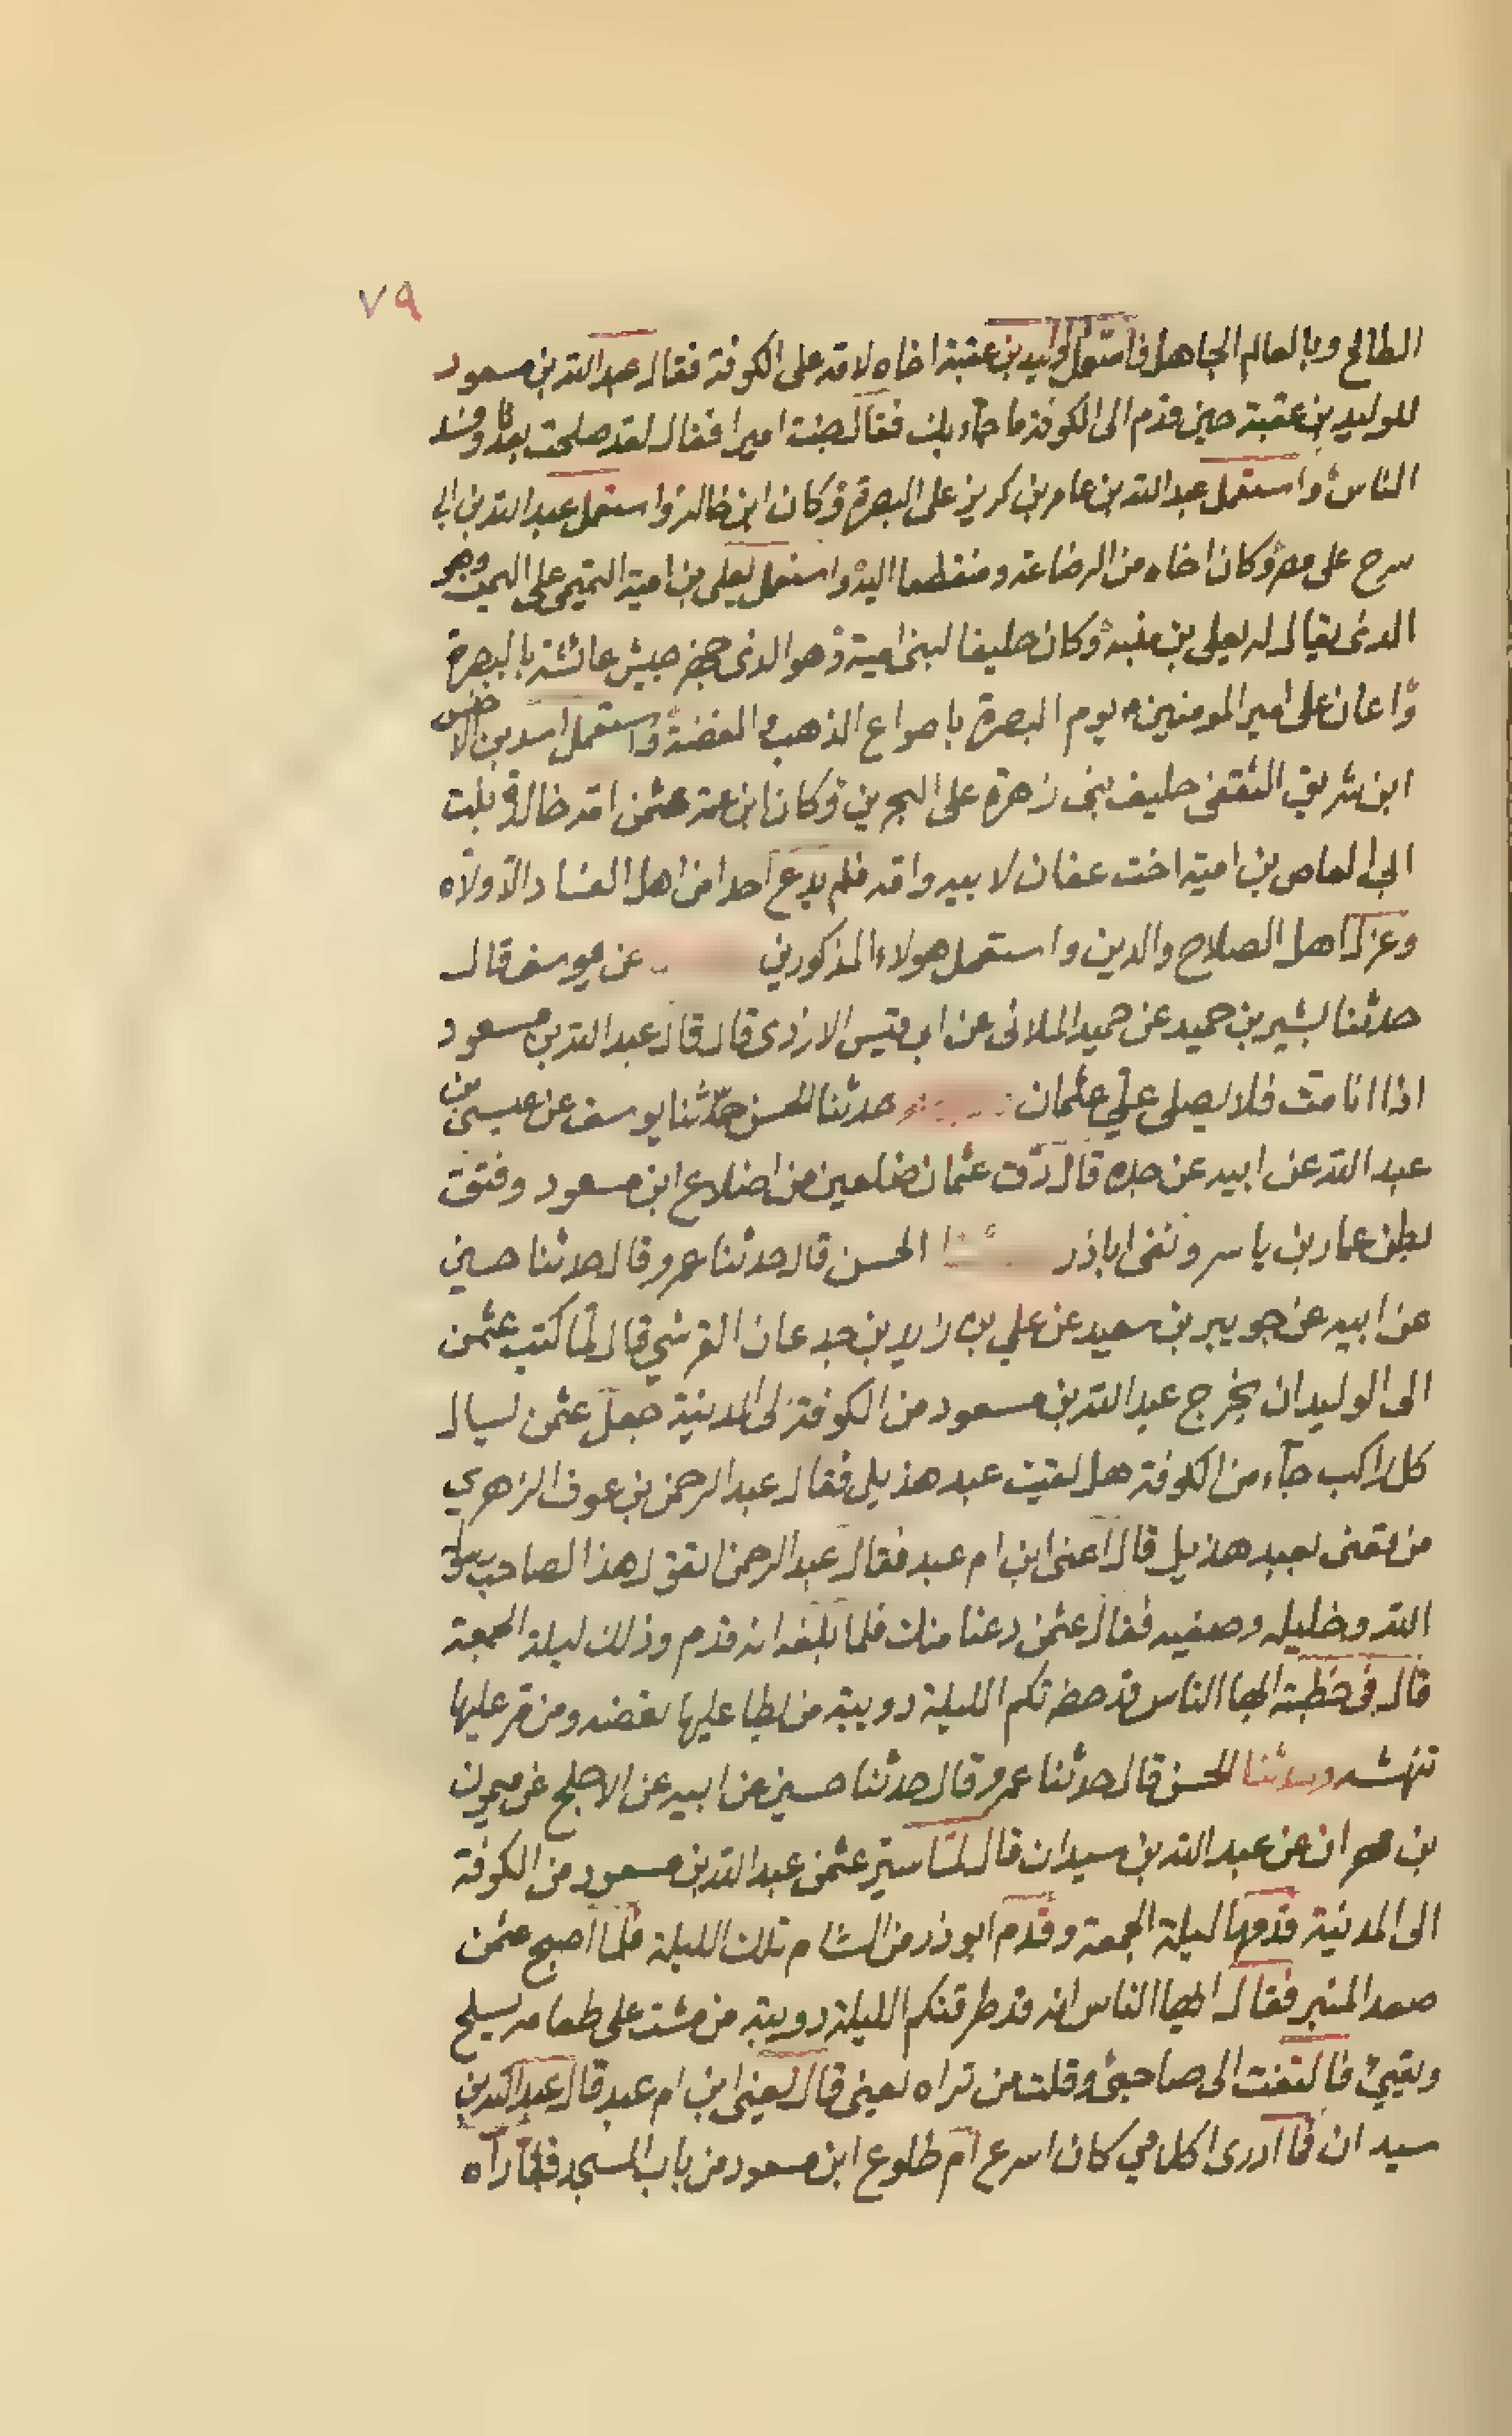 ٧٩
الطالح وبالعالم الجاهل فاستعمل الوليد بن عقبة اخاه لامه على الكوفة فقال عبد الله بن مسعود
للوليد بن عقبة حين قدم الى الكوفة ما جآء بك فقال جئت اميرا فقال لقد صلحت بعدنا وفسد
الناس واستعمل عبد الله بن عامر بن كريز على البصرة وكان ابن خاله واستعمل عبد الله بن ابى
سرح على مصر وكان اخاه من الرضاعة ومنقطعا اليه واستعمل يعلى بن امية التميمي على اليمن وهو
الذى يقال له يعلى بن منبه وكان حليفا لبنى امية وهو الذى جهز جيش عائشة بالبصرة
واعان على امير المومنين ع يوم البصرة باصواع الذهب والفضة واستعمل اسد بن الاخنس
ابن شريق الثقفى حليف بنى زهرة على البحرين وكان ابن عمة عثمن امه خالدة بنت
ابى العاص بن امية اخت عفان لابيه وامه فلم يدع احدا من اهل الفساد الا ولاه
وعزل اهل الصلاح والدين واستعمل هولاء المذكورين عن يوسف قال
حدثنا بشير بن حميد عن حميد الملائى عن ابى قيس الازدى قال قال عبد الله بن مسعود
اذا انا مت فلا يصلى علي عثمان حدثنا الحسن حدّثنا يوسف عن عيسى بن
عبد الله عن ابيه عن جده قال دق عثمان ضلعين من اضلاع ابن مسعود وفتق
بطن عمار بن ياسر ونفى اباذر الحسن قال حدثنا عمرو قال حدثنا حسين
عن ابيه عن جويبر بن سعيد عن علي بن زيد بن جدعان القرشي قال لمّا كتب عثمن
الى الوليد ان يخرج عبد الله بن مسعود من الكوفة الى المدينة جعل عثمن يسال
كل راكب جآء من الكوفة هل لقيت عبد هذيل فقال عبد الرحمن بن عوف الزهري
من تعنى بعبد هذيل قال اعنى ابن ام عبد فقال عبد الرحمن اتقول هذا لصاحب رسول
الله وخليله وصفيه فقال عثمن دعنا منك فلما بلغه انه قدم وذلك ليلة الجمعة
قال فى خطبته ايها الناس قد حضرتكم الليلة دويبة من يطا عليها تعضه ومن مر عليها
تنهشه وحدثنا الحسن قال حدثنا عمرو قال حدثنا حسين عن ابيه عن الاجلح عن ميمون
بن مهران عن عبد الله بن سيدان قال لمّا سيّر عثمن عبد الله بن مسعود من الكوفة
الى المدينة قدمها ليلة الجمعة وقدم ابوذر من الشام تلك الليلة فلما اصبح عثمن
صعد المنبر فقال ايها الناس انه قد طرقتكم الليلة دويبة من مشت على طعامه يسلح
ويقيئ فالتفت الى صاحبى وقلت من تراه يعنى قال يعنى ابن ام عبد قال عبد الله بن
سيدان فما ادرى اكلامي كان اسرع ام طلوع ابن مسعود من باب المسجد فلما رآه